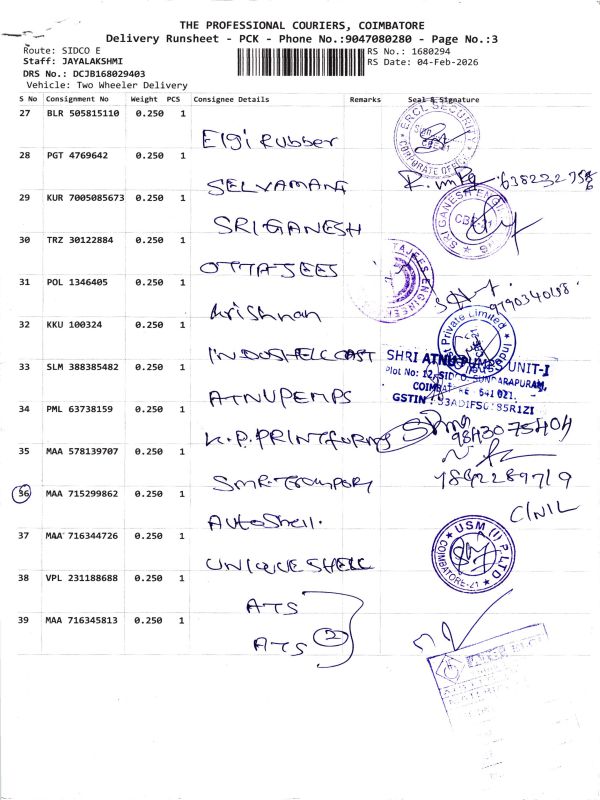 THE PROFESSIONAL COURIERS, COIMBATORE
Delivery Runsheet - PCK - Phone No.:9047080280 - Page No.:3
Route: SIDCO E
RS No.: 1680294
Staff: JAYALAKSHMI
RS Date: 04-Feb-2026
DRS No.: DCJB168029403
Vehicle: Two Wheeler Delivery
S No Consignment No Weight PCS Consignee Details Remarks Seal & Signature
27 BLR 505815110 0.250 1 Elgi Rubber
CORPORATE OFFICE
28 PGT 4769642 0.250 1 SELVAMANI
29 KUR 7005085673 0.250 1 SRI GANESH
SRI GANESH ENGINE
30 TRZ 30122884 0.250 1 OTTAJEES
31 POL 1346405 0.250 1 Krishnan
32 KKU 100324 0.250 1 INDOSHELL CAST
Private Limited
33 SLM 388385482 0.250 1 ATNU PUMPS
SHRI ATNU PUMPS UNIT-I
Plot No: 12, SIDCO, SUNDARAPURAM,
COIMBATORE 641 021.
34 PML 63738159 0.250 1 K.P. PRINTFORMS
9843075404
35 MAA 578139707 0.250 1
36 MAA 715299862 0.250 1 AutoShell.
C/NIL
37 MAA 716344726 0.250 1 UNIQUE SHELL
USM (I) P LTD
COIMBATORE-21
38 VPL 231188688 0.250 1 ATS
39 MAA 716345813 0.250 1 ATS 2